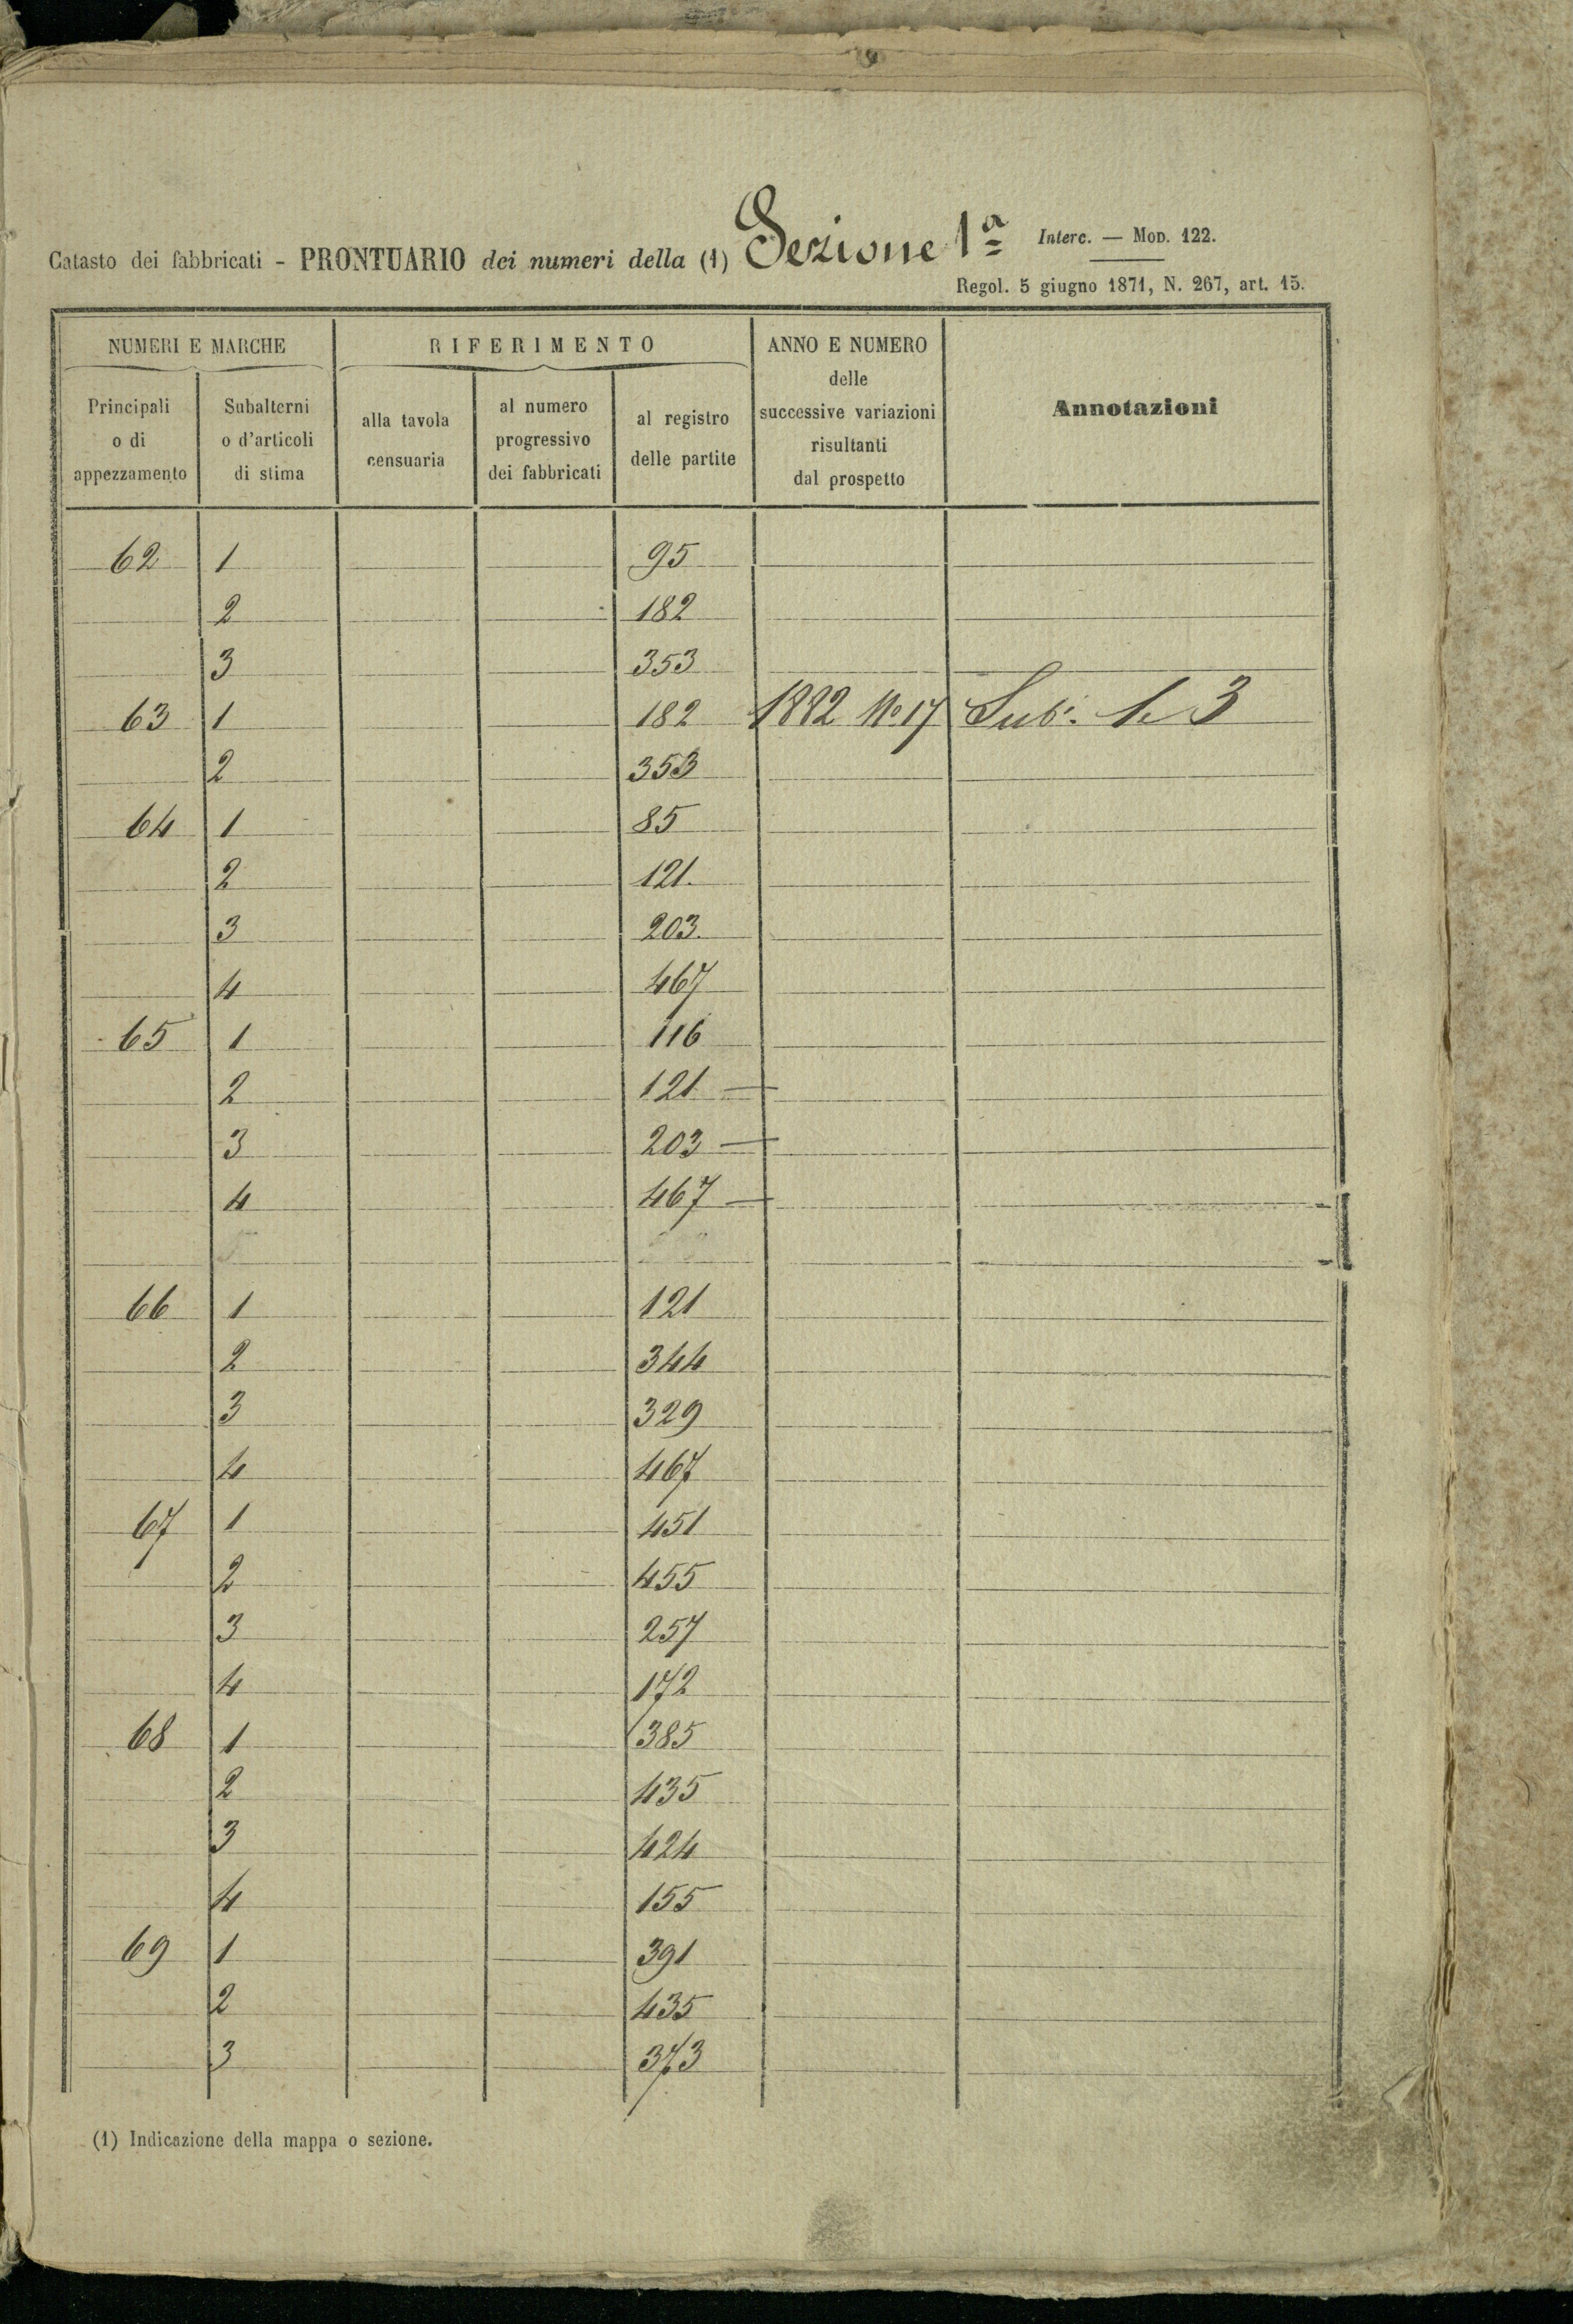 Catasto dei fabbricati - PRONTUARIO dei numeri della (1) Sezione 1ª
Interc. — Mod. 122.
Regol. 5 giugno 1871, N. 267, art. 15.
NUMERI E MARCHE
RIFERIMENTO
ANNO E NUMERO
delle
successive variazioni
risultanti
dal prospetto
Annotazioni
Principali
o di
appezzamento
Subalterni
o d'articoli
di stima
alla tavola
censuaria
al numero
progressivo
dei fabbricati
al registro
delle partite
62 1 95
2 182
3 353
63 1 182 1882 No 17 Sub. 3
2 353
64 1 85
2 121.
3 203.
4 467
65 1 116
2 121 —
3 203 —
4 467 —
66 1 121
2 344
3 329
4 467
67 1 451
2 455
3 257
4 172
68 1 385
2 435
3 424
4 155
69 1 391
2 435
3 373
(1) Indicazione della mappa o sezione.